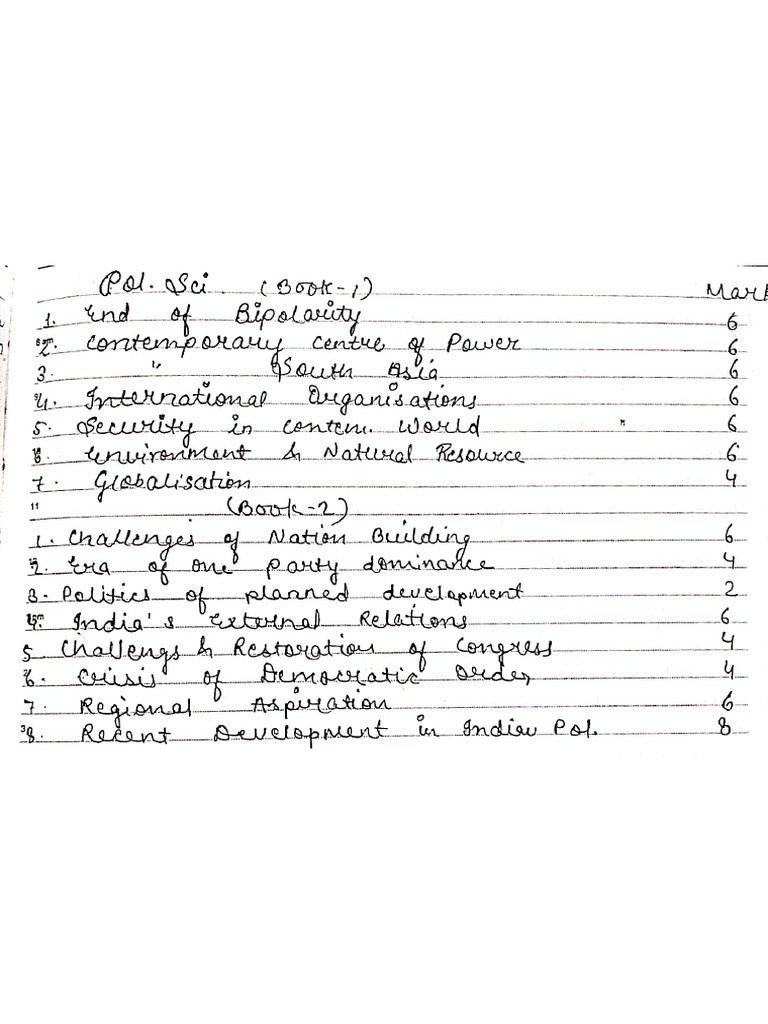 Pol. Sci. (Book-1) Mark
1. End of Bipolarity 6
2. Contemporary centre of Power 6
3. " South Asia 6
4. International Organisations 6
5. Security in contem. World 6
6. Environment & Natural Resource 6
7. Globalisation 4
" (Book-2)
1. Challenges of Nation Building 6
2. Era of one party dominance 4
3. Politics of planned development 2
4. India's External Relations 6
5 Challengs & Restoration of Congress 4
6. Crisis of Democratic Order 4
7. Regional Aspiration 6
8. Recent Development in Indian Pol. 8